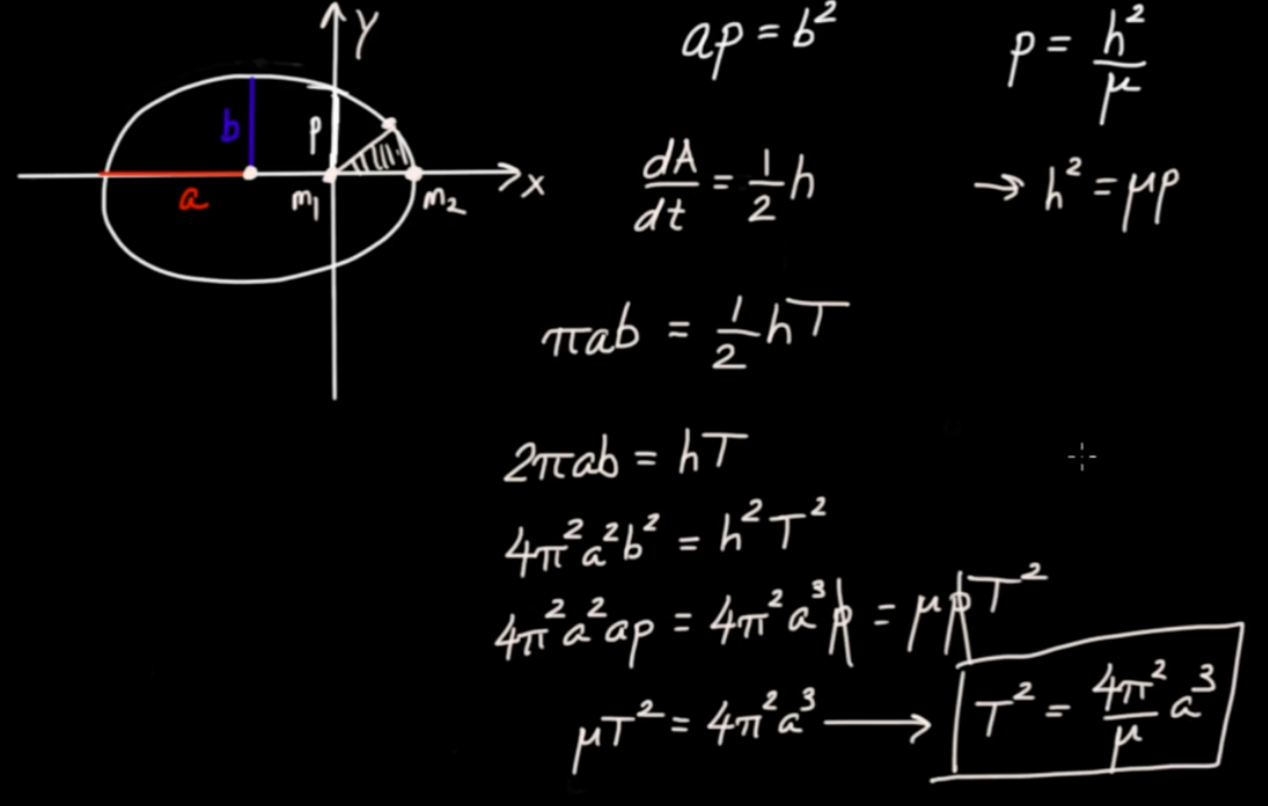 y
b
p
a
m₁
m₂
x
ap = b²
p = h²/μ
dA/dt = 1/2 h
→ h² = μp
πab = 1/2 hT
2πab = hT
4π²a²b² = h²T²
4π²a²ap = 4π²a³p = μpT²
μT² = 4π²a³ ⟶ T² = 4π²/μ a³